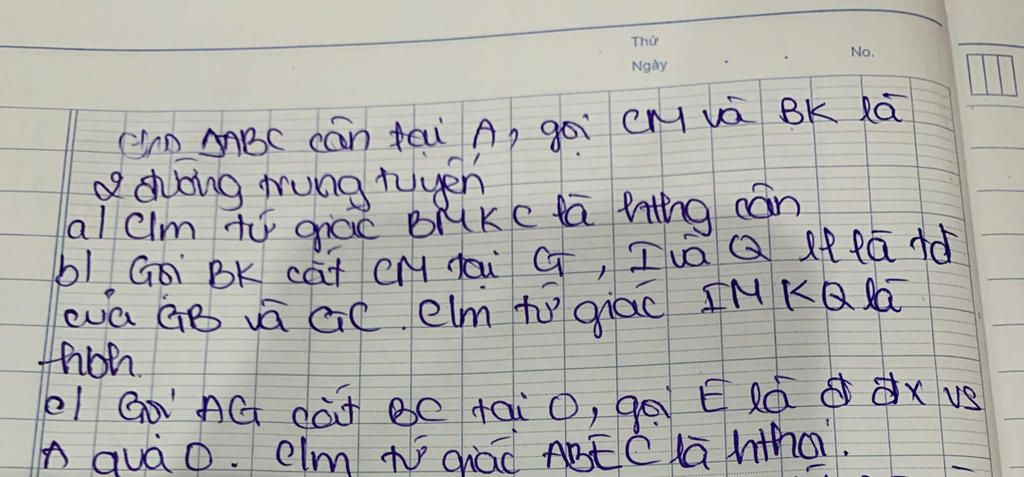 Thứ
Ngày . . No.
Cho ΔABC cân tại A, gọi CM và BK là
2 đường trung tuyến
a/ C/m tứ giác BMKC là hthg cân
b/ Gọi BK cắt CM tại G, I và Q ll là tđ
của GB và GC. C/m tứ giác IMKQ là
hbh.
c/ Gọi AG cắt BC tại O, gọi E là đ đx vs
A qua O. C/m tứ giác ABEC là hthoi.